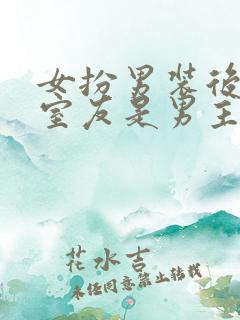 女扮男装後
室友是男主
花水吉
未经同意禁止转载